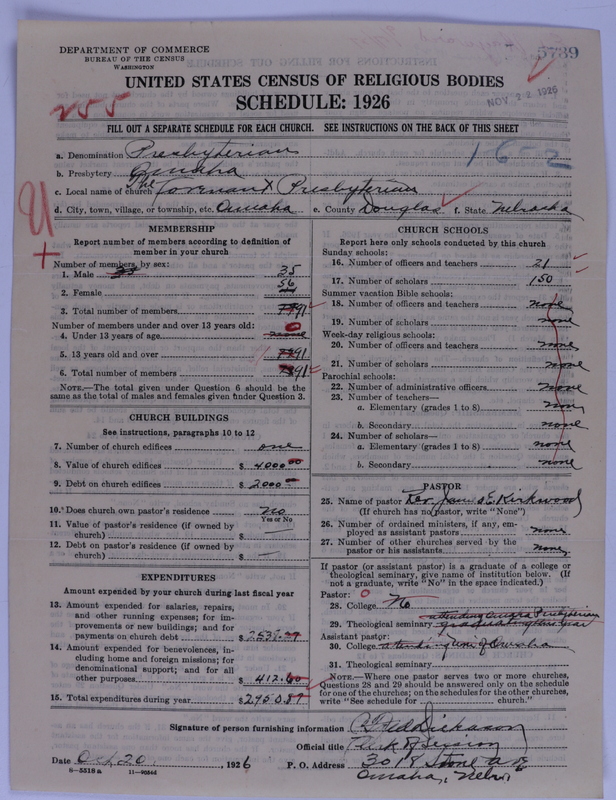 DEPARTMENT OF COMMERCE
BUREAU OF THE CENSUS
WASHINGTON
5789
UNITED STATES CENSUS OF RELIGIOUS BODIES
SCHEDULE: 1926
255
NOV 22 1926
FILL OUT A SEPARATE SCHEDULE FOR EACH CHURCH. SEE INSTRUCTIONS ON THE BACK OF THIS SHEET
a. Denomination Presbyterian
b. Presbytery Omaha
c. Local name of church The Covenant Presbyterian
d. City, town, village, or township, etc. Omaha e. County Douglas f. State Nebraska
MEMBERSHIP
Report number of members according to definition of member in your church
Number of members by sex:
1. Male 35
2. Female 56
3. Total number of members 91
Number of members under and over 13 years old:
4. Under 13 years of age 0
5. 13 years old and over 91
6. Total number of members 91
NOTE.—The total given under Question 6 should be the same as the total of males and females given under Question 3.
CHURCH BUILDINGS
See instructions, paragraphs 10 to 12
7. Number of church edifices one
8. Value of church edifices $ 4000 00
9. Debt on church edifices $ 2000 00
10. Does church own pastor's residence? No
Yes or No
11. Value of pastor's residence (if owned by church) $ —
12. Debt on pastor's residence (if owned by church) $ —
EXPENDITURES
Amount expended by your church during last fiscal year
13. Amount expended for salaries, repairs, and other running expenses; for improvements or new buildings; and for payments on church debt $ 2538.27
14. Amount expended for benevolences, including home and foreign missions; for denominational support; and for all other purposes $ 412.60
15. Total expenditures during year $ 2950.87
CHURCH SCHOOLS
Report here only schools conducted by this church
Sunday schools:
16. Number of officers and teachers 21
17. Number of scholars 150
Summer vacation Bible schools:
18. Number of officers and teachers none
19. Number of scholars none
Week-day religious schools:
20. Number of officers and teachers none
21. Number of scholars none
Parochial schools:
22. Number of administrative officers none
23. Number of teachers—
a. Elementary (grades 1 to 8) none
b. Secondary none
24. Number of scholars—
a. Elementary (grades 1 to 8) none
b. Secondary none
PASTOR
25. Name of pastor Rev. James E. Kirkwood
(If church has no pastor, write "None")
26. Number of ordained ministers, if any, employed as assistant pastors none
27. Number of other churches served by the pastor or his assistants none
If pastor (or assistant pastor) is a graduate of a college or theological seminary, give name of institution below. (If not a graduate, write "No" in the space indicated.)
Pastor:
28. College No
29. Theological seminary attending Omaha Presbyterian
Assistant pastor:
30. College attending Univ of Omaha
31. Theological seminary
NOTE.—Where one pastor serves two or more churches, Questions 28 and 29 should be answered only on the schedule for one of the churches; on the schedules for the other churches, write "See schedule for church."
Signature of person furnishing information
Official title Clerk of Session
Date Oct 20, 1926 P. O. Address 3018 Stone Ave
Omaha, Nebr
6—5518a 11—9024d